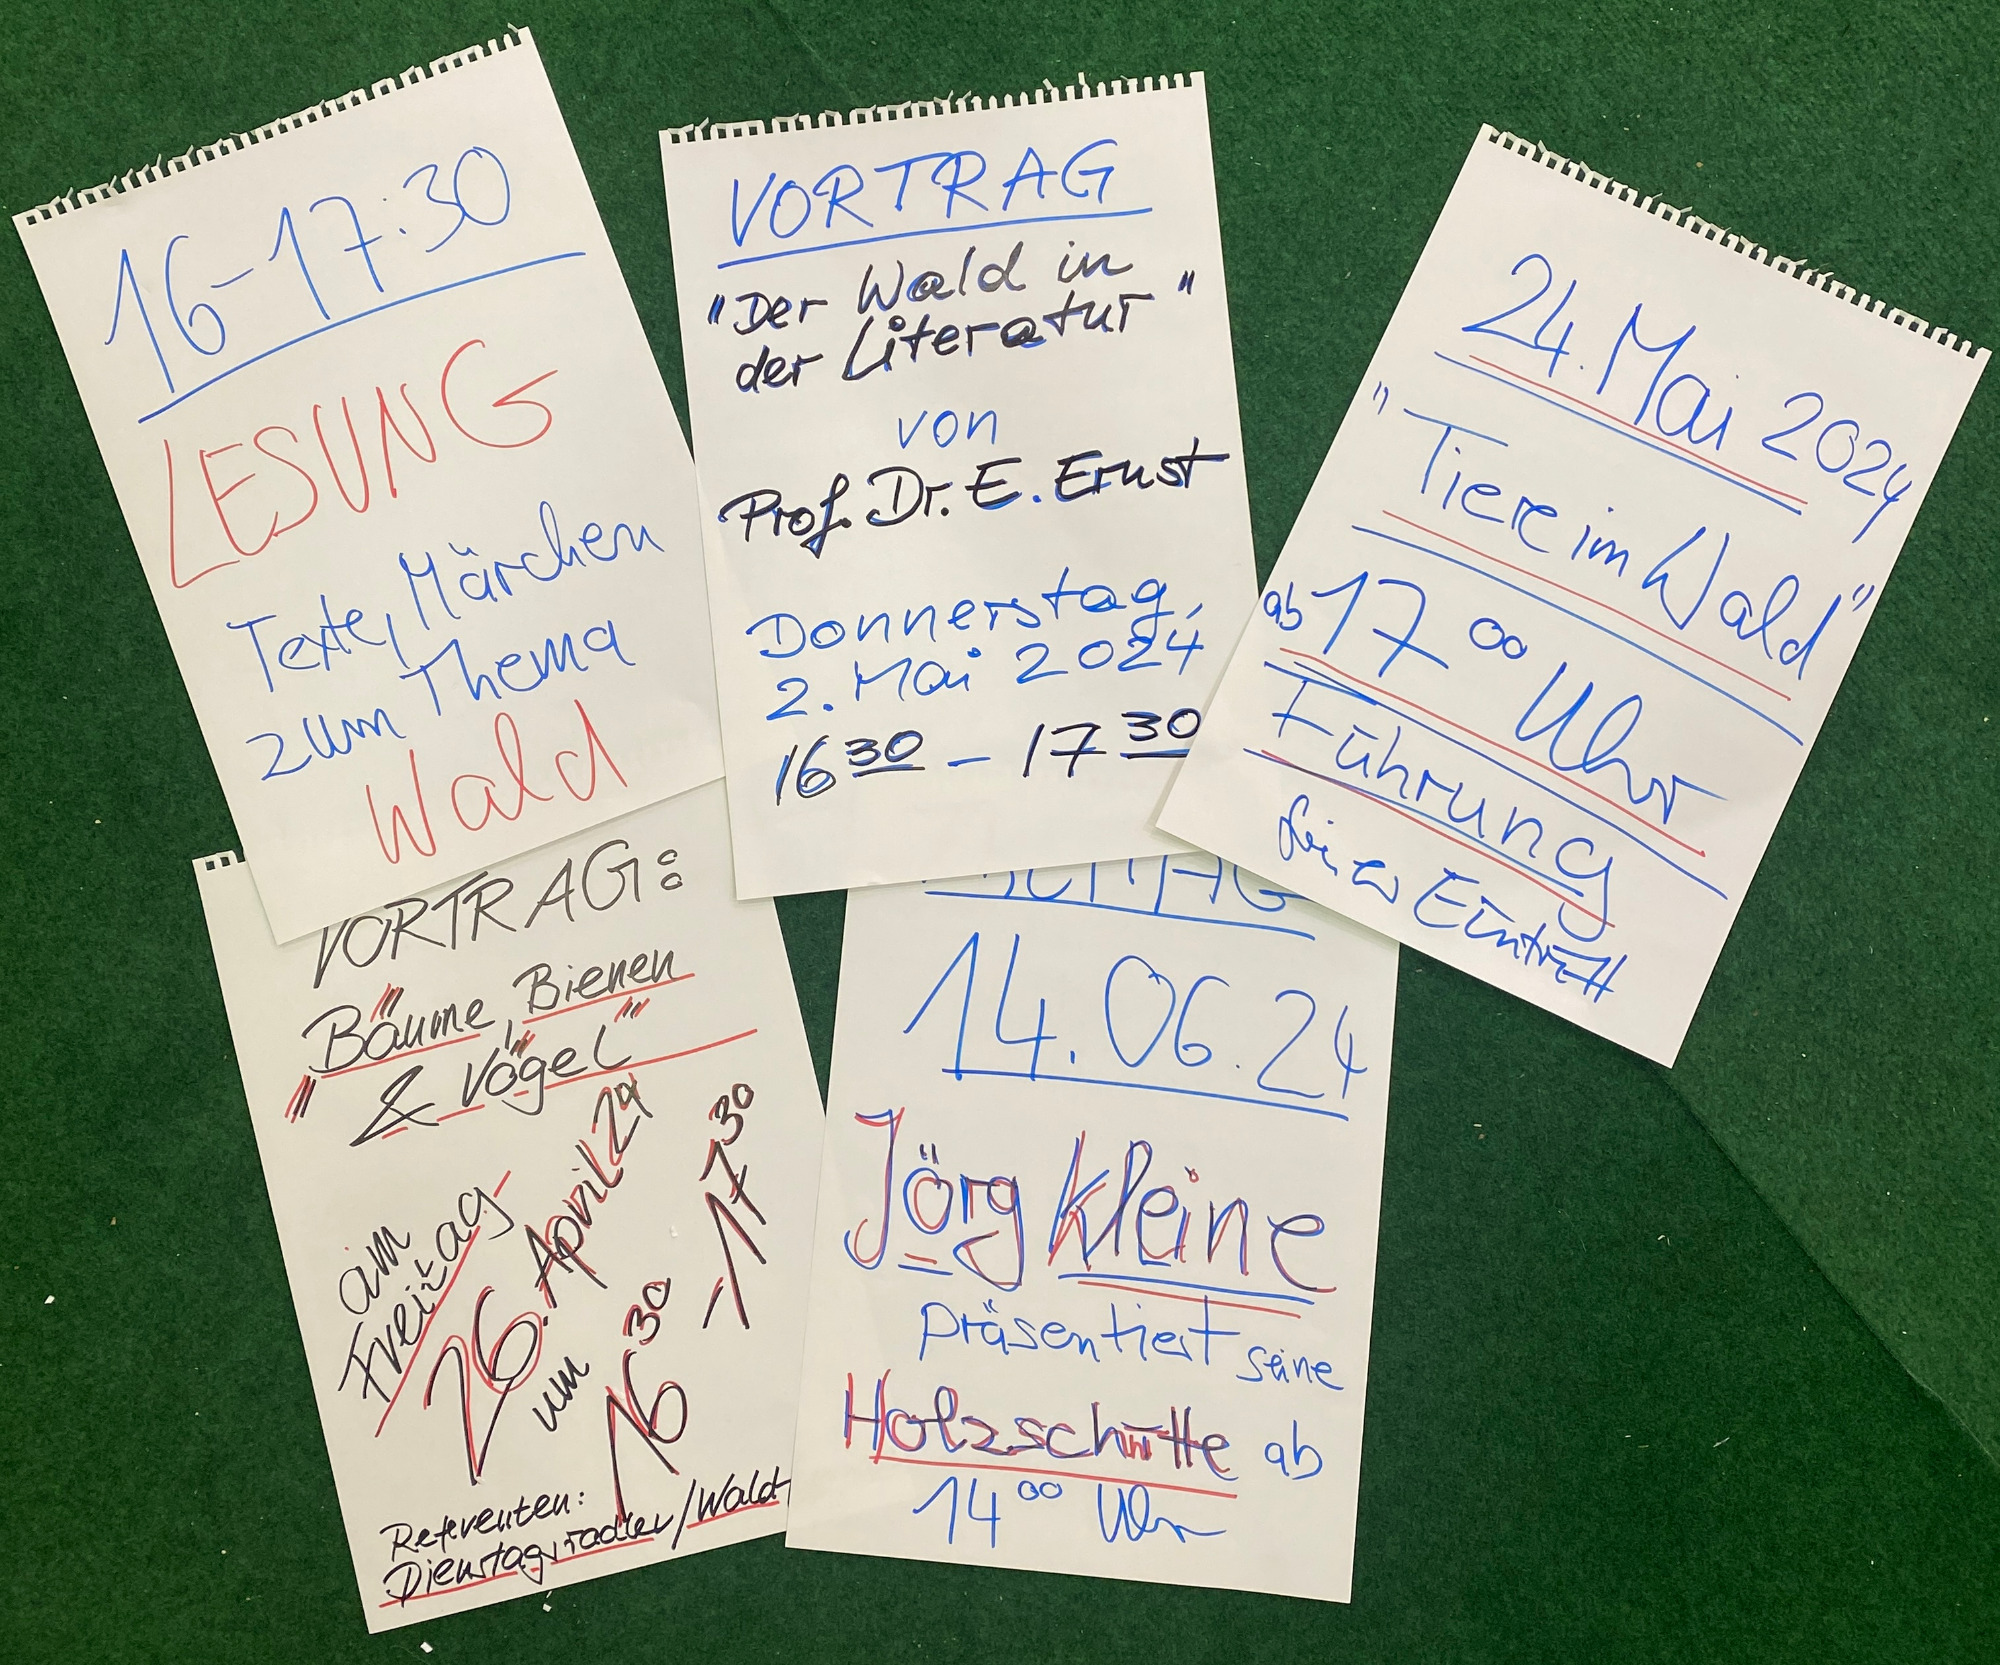 16-17:30
LESUNG
Texte, Märchen
zum Thema
Wald
VORTRAG
"Der Wald in
der Literatur"
von
Prof. Dr. E. Ernst
Donnerstag,
2. Mai 2024
16 30 - 17 30
24. Mai 2024
"Tiere im Wald"
ab 17 00 Uhr
Führung
freier Eintritt
VORTRAG:
"Bäume, Bienen
& Vögel"
am
Freitag
26. April 24
um 16 30 - 17 30
Referenten:
Dienstagsradler/Wald-
14.06.24
Jörg Kleine
präsentiert seine
Holzschnitte ab
14 00 Uhr